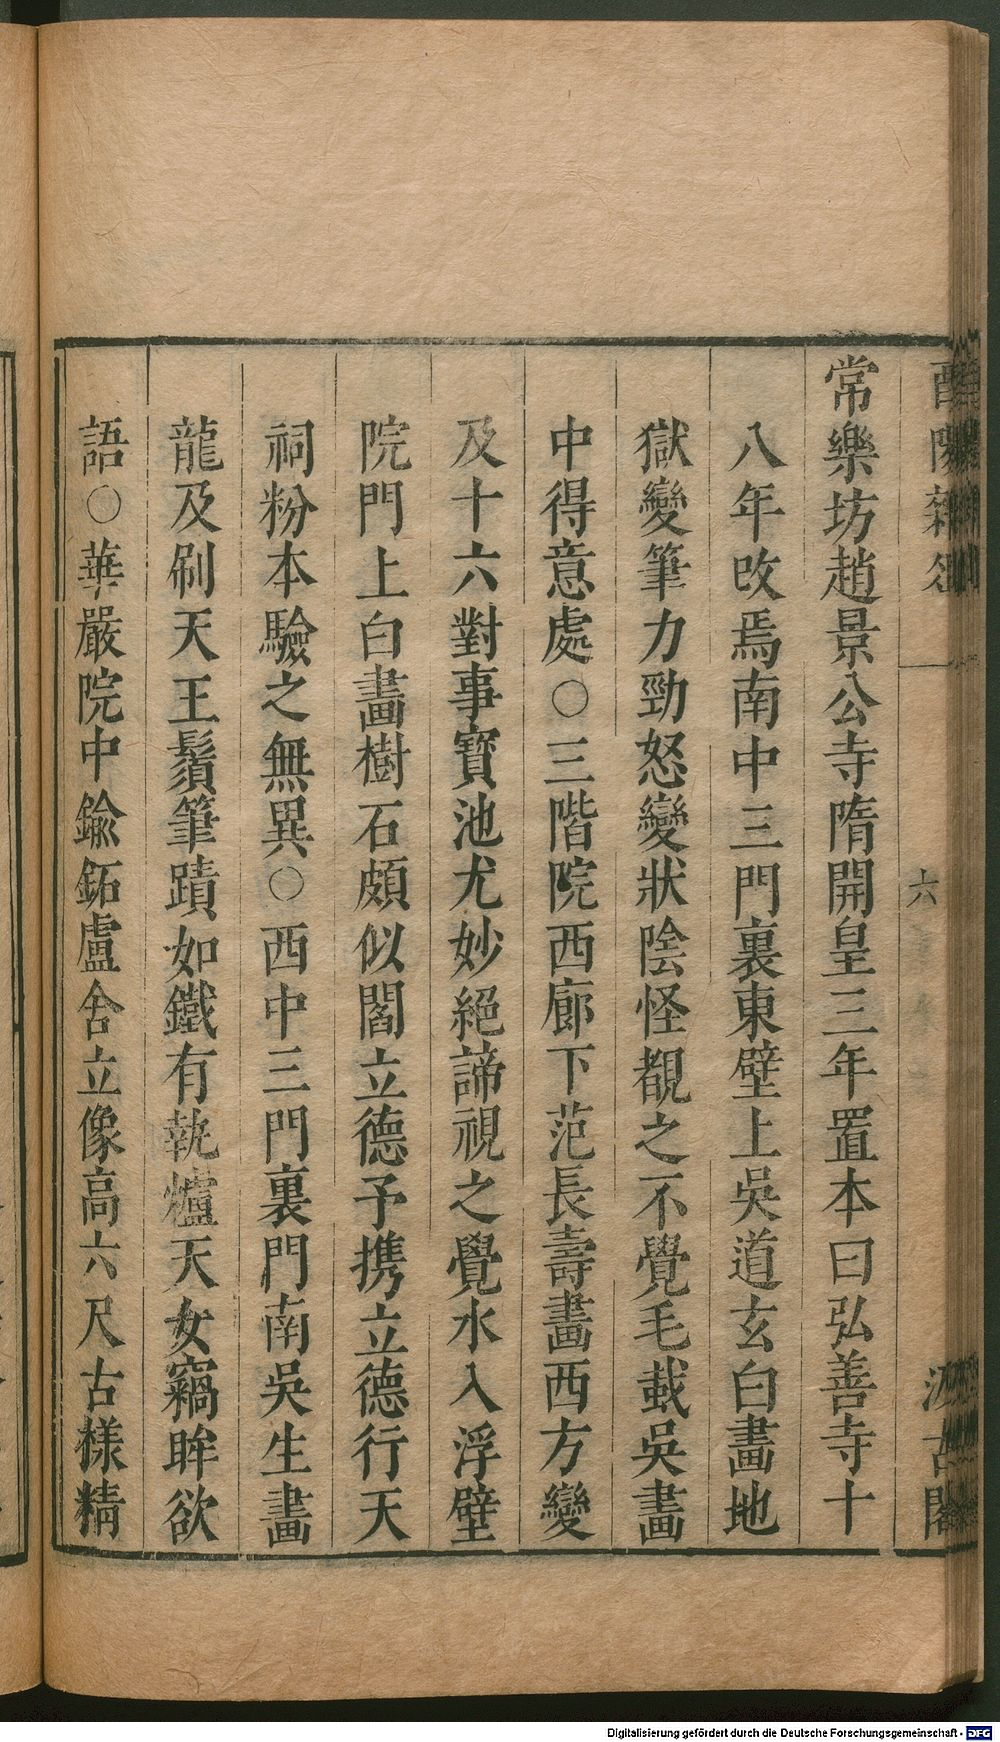 酉陽雜俎
六
汲古閣
常樂坊趙景公寺隋開皇三年置本曰弘善寺十
八年改焉南中三門裏東壁上吳道玄白畫地
獄變筆力勁怒變狀陰怪覩之不覺毛戴吳畫
中得意處○三階院西廊下范長壽畫西方變
及十六對事寶池尤妙絕諦視之覺水入浮壁
院門上白畫樹石頗似閻立德予携立德行天
祠粉本驗之無異○西中三門裏門南吳生畫
龍及刷天王鬚筆蹟如鐵有執爐天女竊眸欲
語○華嚴院中鍮鉐盧舍立像高六尺古樣精
Digitalisierung gefördert durch die Deutsche Forschungsgemeinschaft - DFG